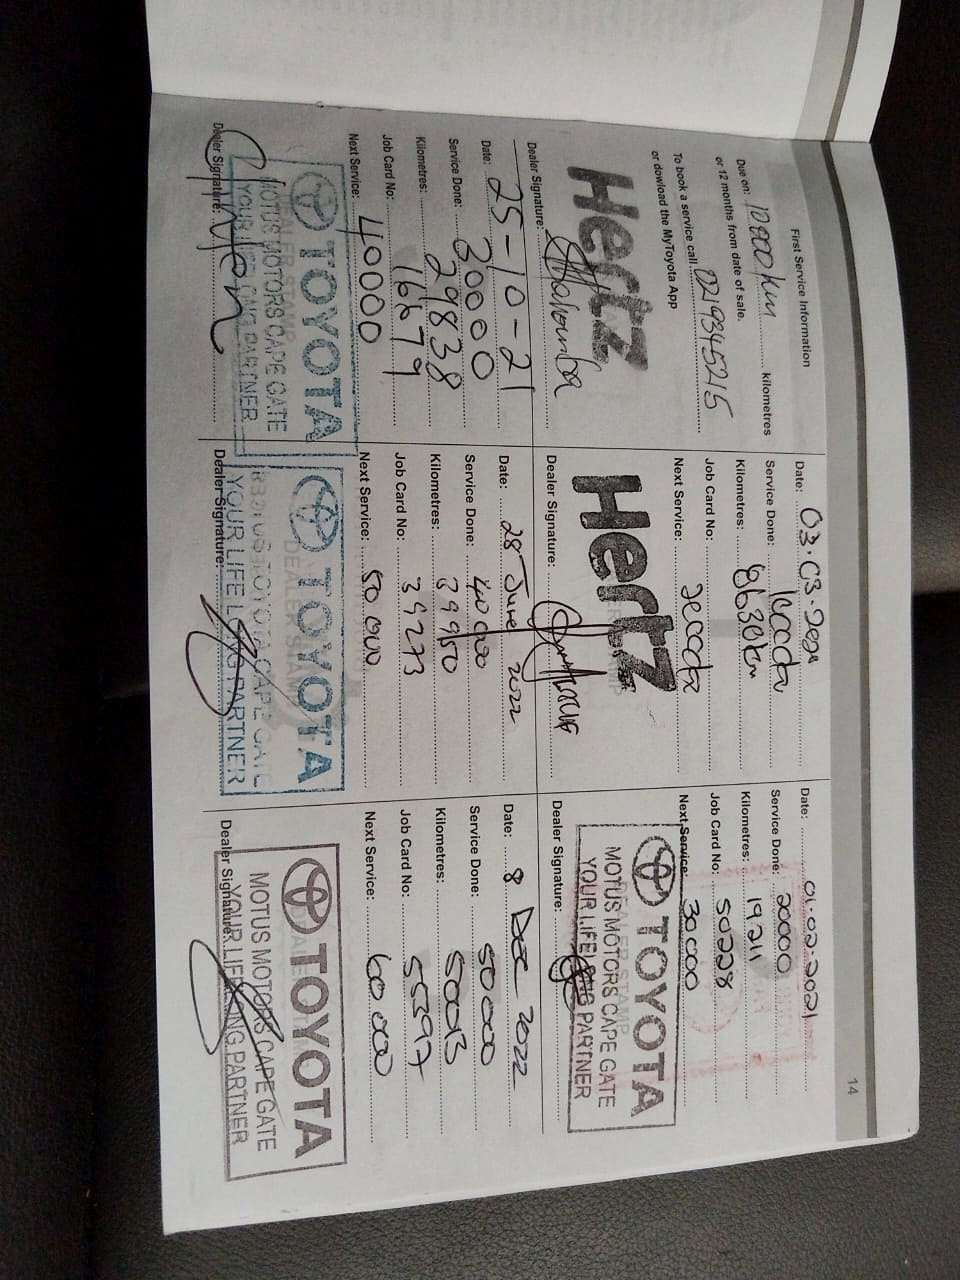 14
First Service Information
Due on: 10 000 km kilometres
or 12 months from date of sale.
To book a service call 0219345215
or dowload the MyToyota App
Hertz
Dealer Signature:
Date: 03.03.2020
Service Done:
Kilometres: 8630km
Job Card No:
Next Service:
Hertz
Dealer Signature:
Date: 01.02.2021
Service Done: 20000
Kilometres: 19211
Job Card No: 50228
Next Service: 30000
TOYOTA
MOTUS MOTORS CAPE GATE
YOUR LIFELONG PARTNER
Dealer Signature:
Date: 25-10-21
Service Done: 30000
Kilometres: 29838
Job Card No: 16679
Next Service: 40000
TOYOTA
MOTUS MOTORS CAPE GATE
YOUR LIFELONG PARTNER
Dealer Signature:
Date: 28 June 2022
Service Done: 40 000
Kilometres: 39950
Job Card No: 39273
Next Service: 50 000
TOYOTA
CAPE GATE
YOUR LIFELONG PARTNER
Dealer Signature:
Date: 8 Dec 2022
Service Done: 50000
Kilometres: 50013
Job Card No: 55597
Next Service: 60 000
TOYOTA
MOTUS MOTORS CAPE GATE
YOUR LIFELONG PARTNER
Dealer Signature: